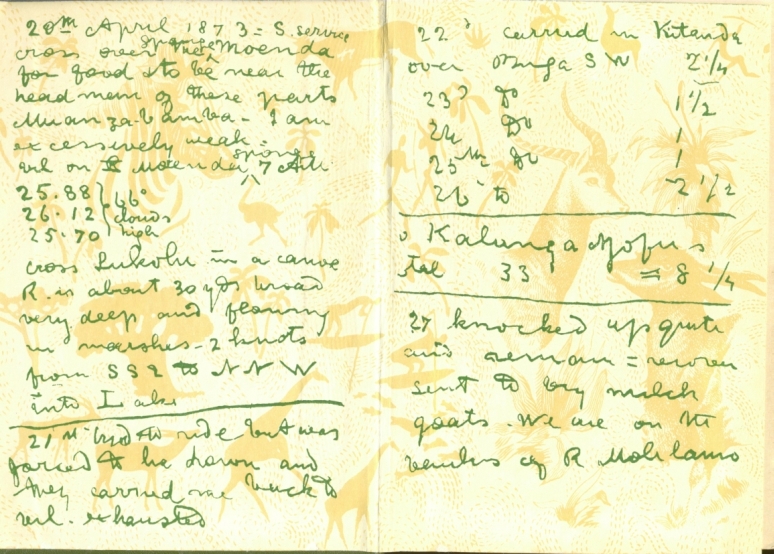 20th April 1873 = S. service
cross over the sponge Moenda
for food & to be near the
headman of these parts
Muanzabamba - I am
excessively weak =
vil on Moenda sponge 7 AM
25.88 } 66°
26.12 } clouds
25.70 } high
cross Lukolu in a canoe
R. is about 30 yds broad
very deep and flowing
in marshes - 2 knots
from SSE to NNW
into Lake
21st tried to ride but was
forced to lie down and
they carried me back to
vil. exhausted
22d carried in Kitanda
over Buga SW 2 1/4
23d Do 1 1/2
24 Do 1
25th Do 1
26 to 2 1/2
Kalunga Mofu's
tal 33 = 8 1/4
27 knocked up quite
and remain = recover
sent to buy milch
goats. We are on the
banks of R Molilamo